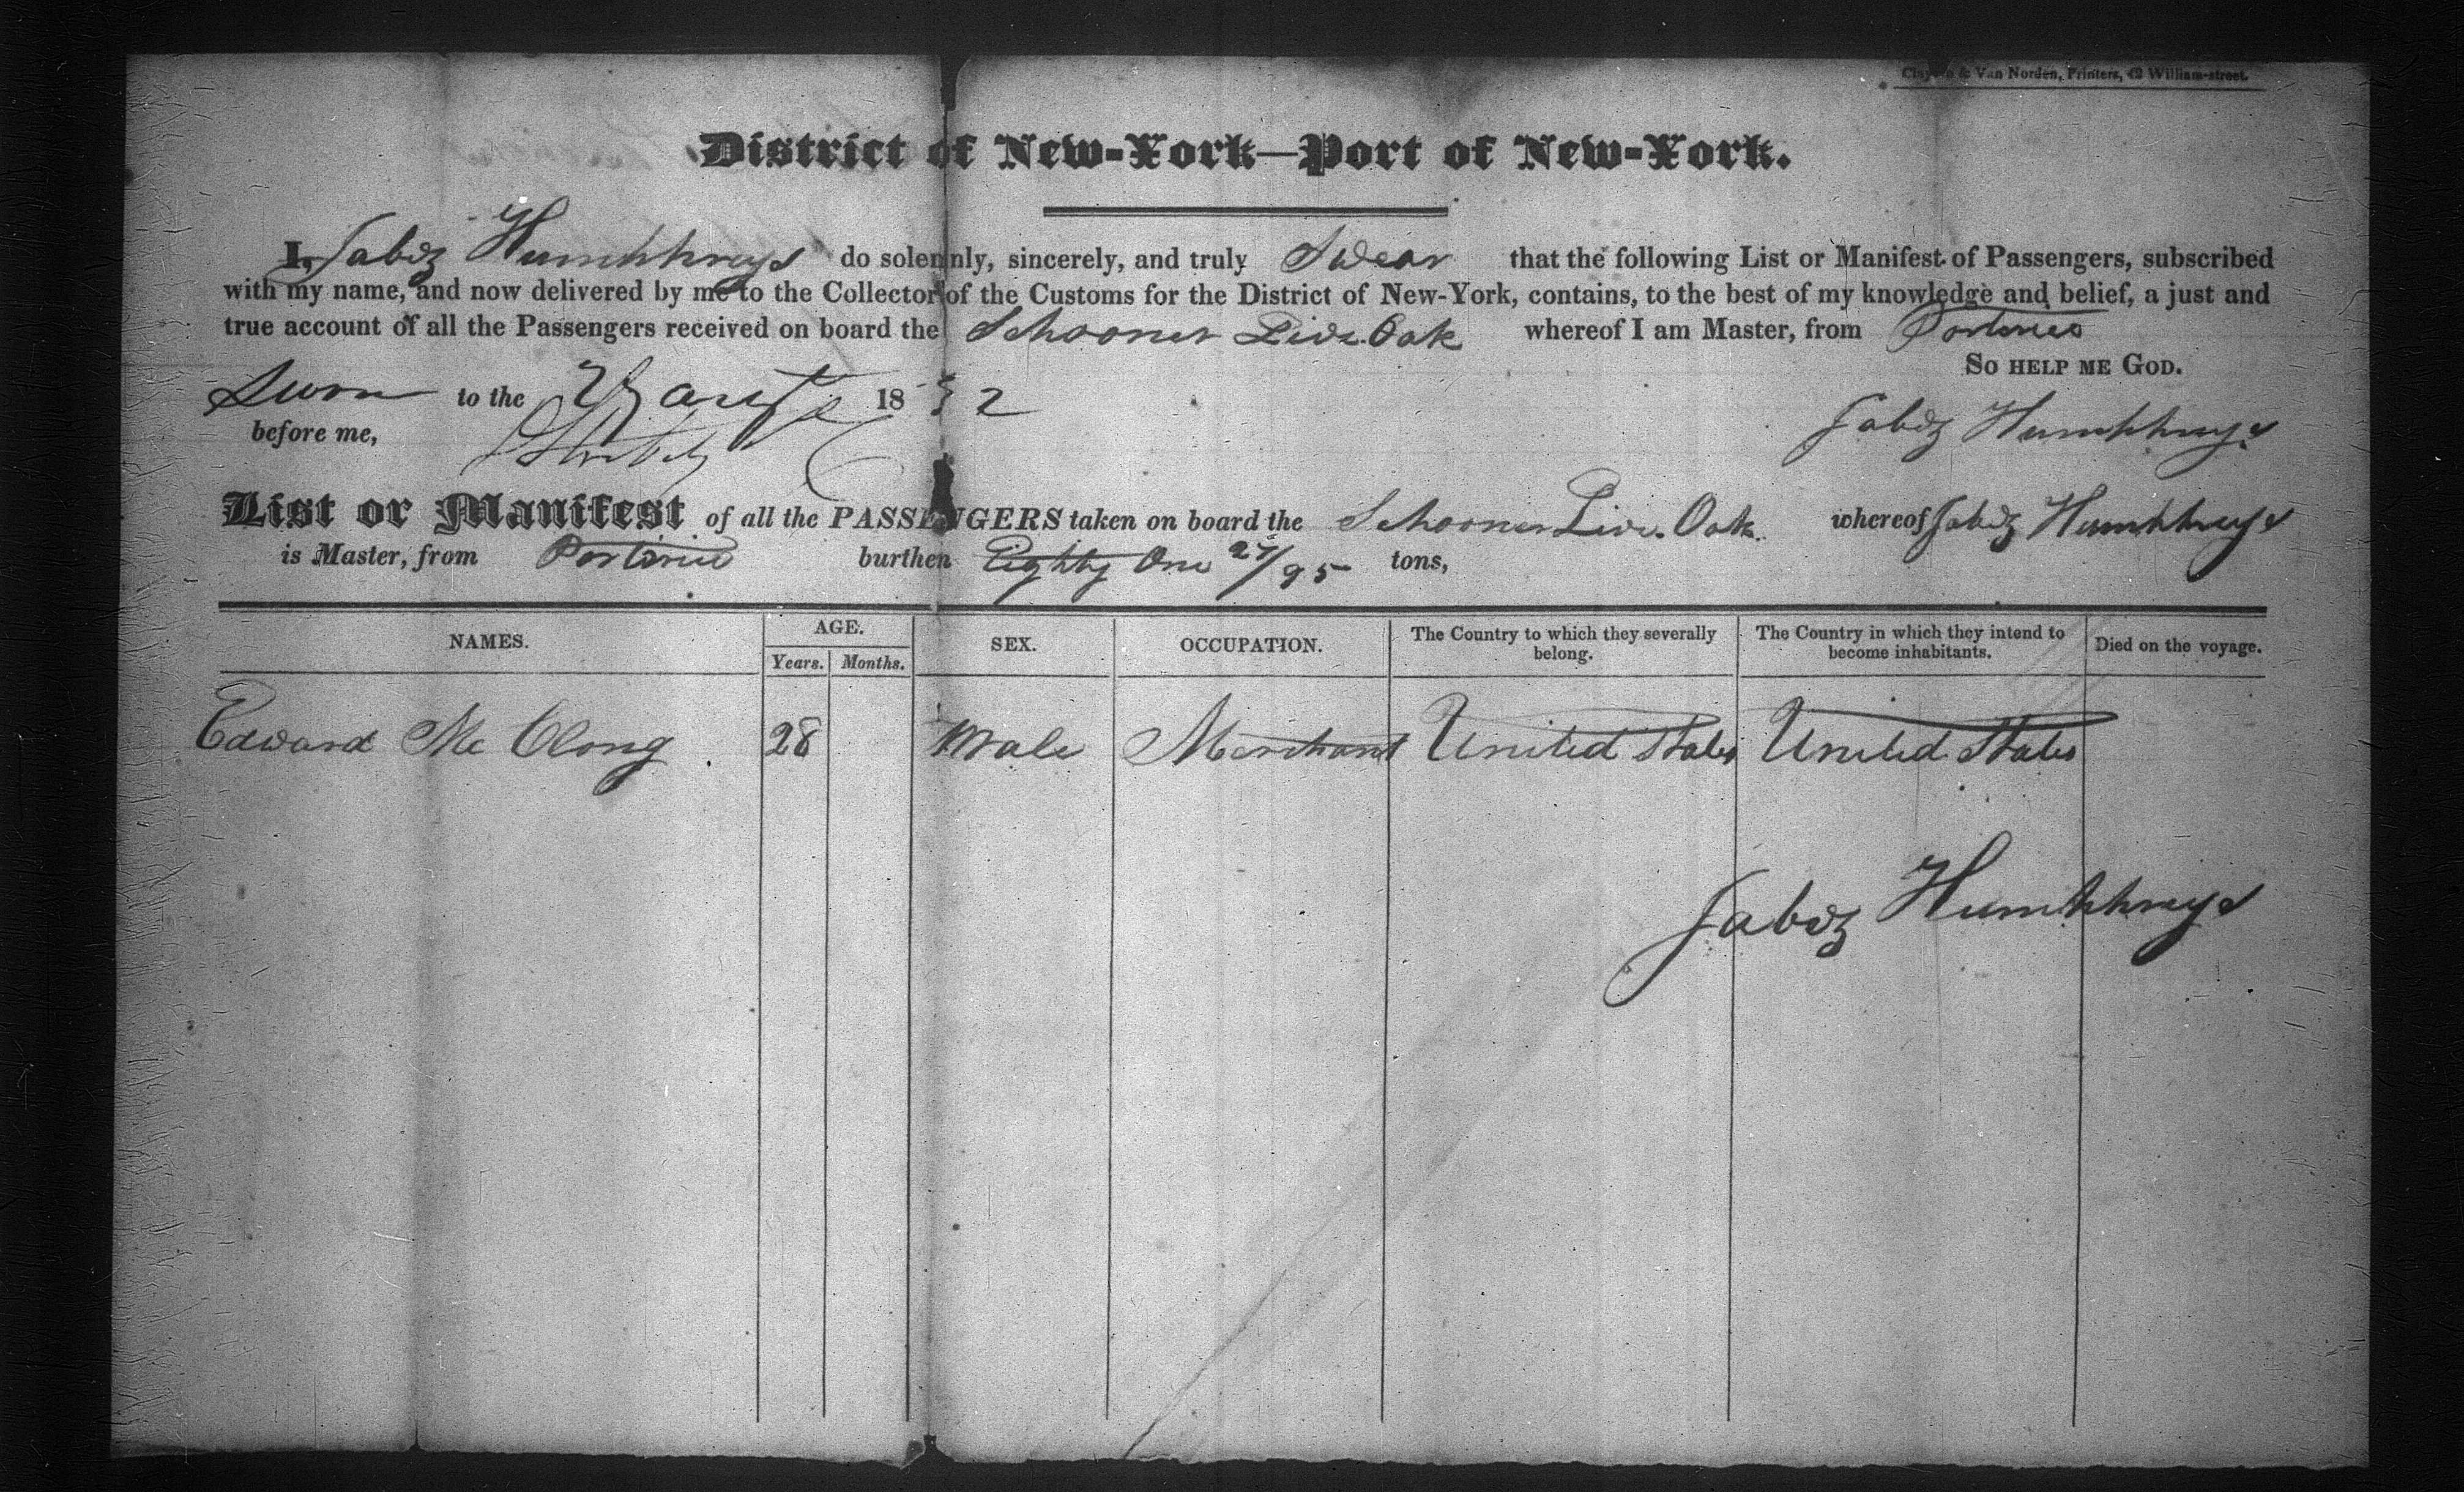 Clayton & Van Norden, Printers, 42 William-street.
District of New-York—Port of New-York.
I, Jabez Humphreys do solemnly, sincerely, and truly Swear that the following List or Manifest of Passengers, subscribed
with my name, and now delivered by me to the Collector of the Customs for the District of New-York, contains, to the best of my knowledge and belief, a just and
true account of all the Passengers received on board the Schooner Live Oak whereof I am Master, from Portorico
So help me God.
Sworn to the 1832
before me,
Jabez Humphreys
List or Manifest of all the PASSENGERS taken on board the Schooner Live Oak whereof Jabez Humphreys
is Master, from Portorico burthen Eighty One 27/95 tons,
NAMES. AGE. SEX. OCCUPATION. The Country to which they severally belong. The Country in which they intend to become inhabitants. Died on the voyage.
Years. Months.
Edward Mc Clong 28 Male Merchant United States United States
Jabez Humphreys